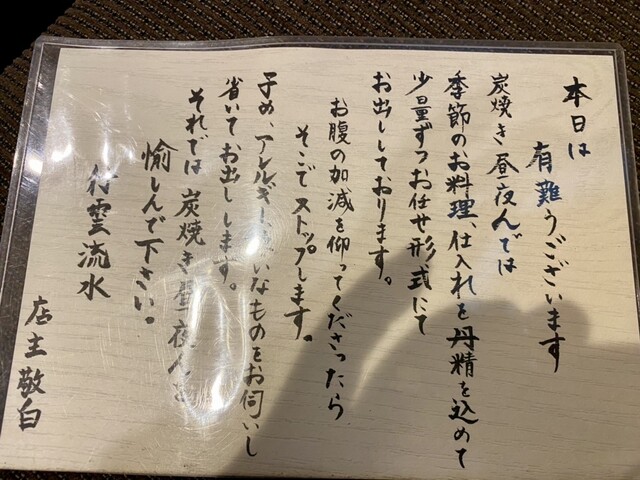 本日は
有難うございます
炭焼き昼夜んでは
季節のお料理、仕入れを丹精を込めて
少量ずつお任せ形式にて
お出ししております。
お腹の加減を仰ってくださったら
そこでストップします。
予め、アレルギー いなものをお伺いし
省いてお出しします。
それでは炭焼き昼夜んを
愉しんで下さい。
行雲流水
店主敬白